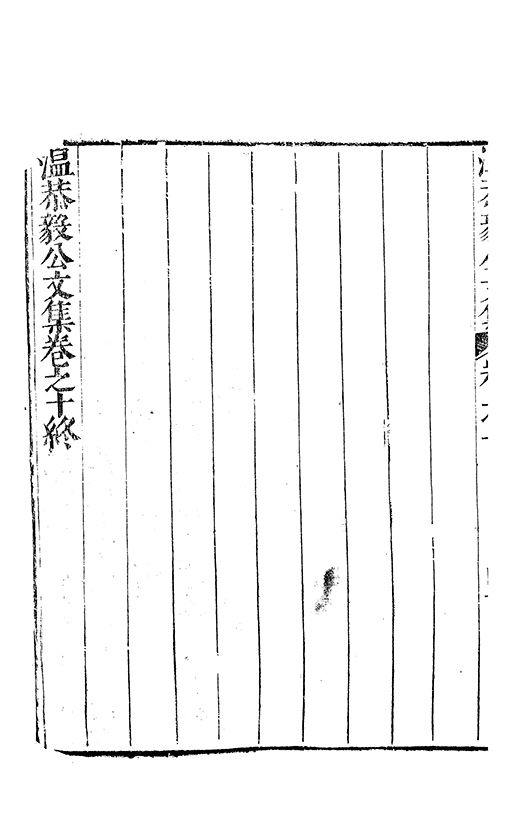 温恭毅公文集卷之十終